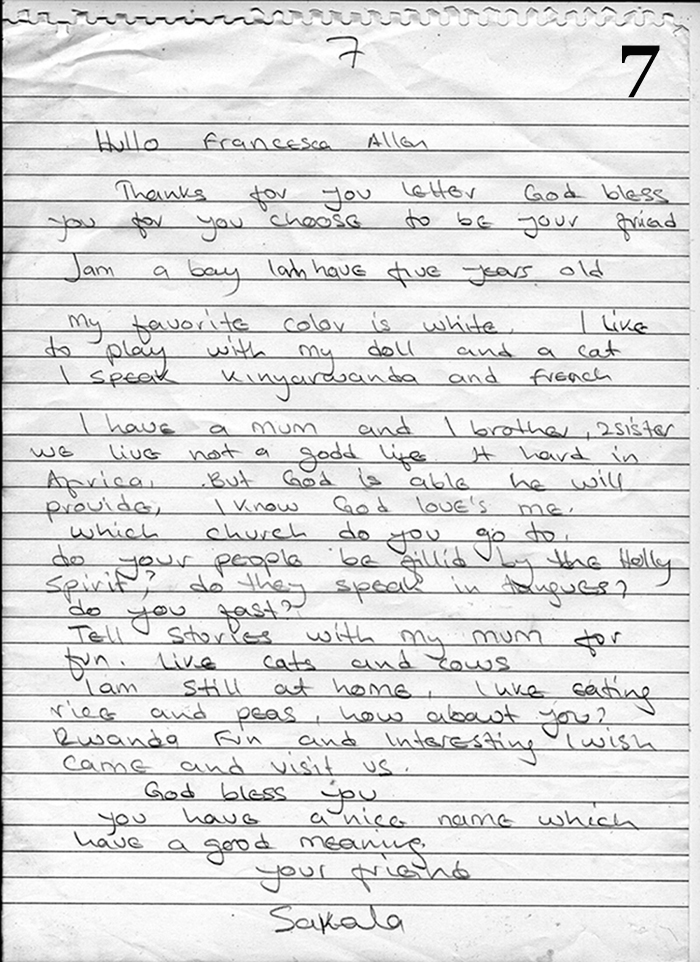 7
7
Hullo Francesca Allen
Thanks for you letter God bless
you for you choose to be your friend
Iam a bay Iah have five years old
My favorite color is white. I like
to play with my doll and a cat
I speak Kinyarwanda and french
I have a mum and 1 brother, 2sister
we live not a godd life. It hard in
Africa, .But God is able he will
provide, I know God love's me.
which church do you go to.
do your people be fillid by the Holly
Spirit? do they speak in tongues?
do you fast?
Tell Stories with my mum for
fun. Like cats and cows
Iam Still at home, I like eating
rice and peas, how abawt you?
Rwanda Fun and Interesting I wish
came and visit us.
God bless you
you have a nice name which
have a good meaning.
your friend
Sakala